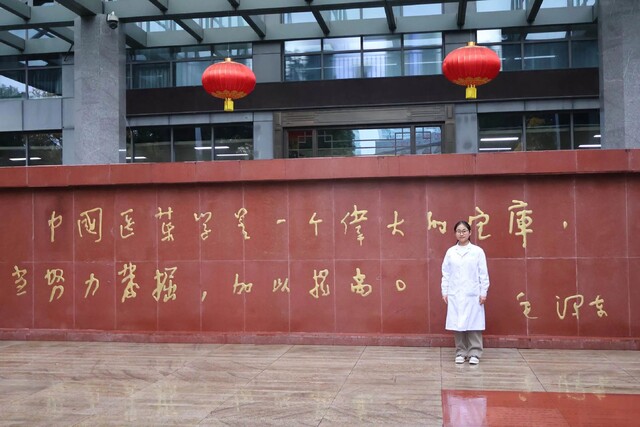 中國医药学是一个伟大的宝庫，
当努力發掘，加以提高。
毛泽东